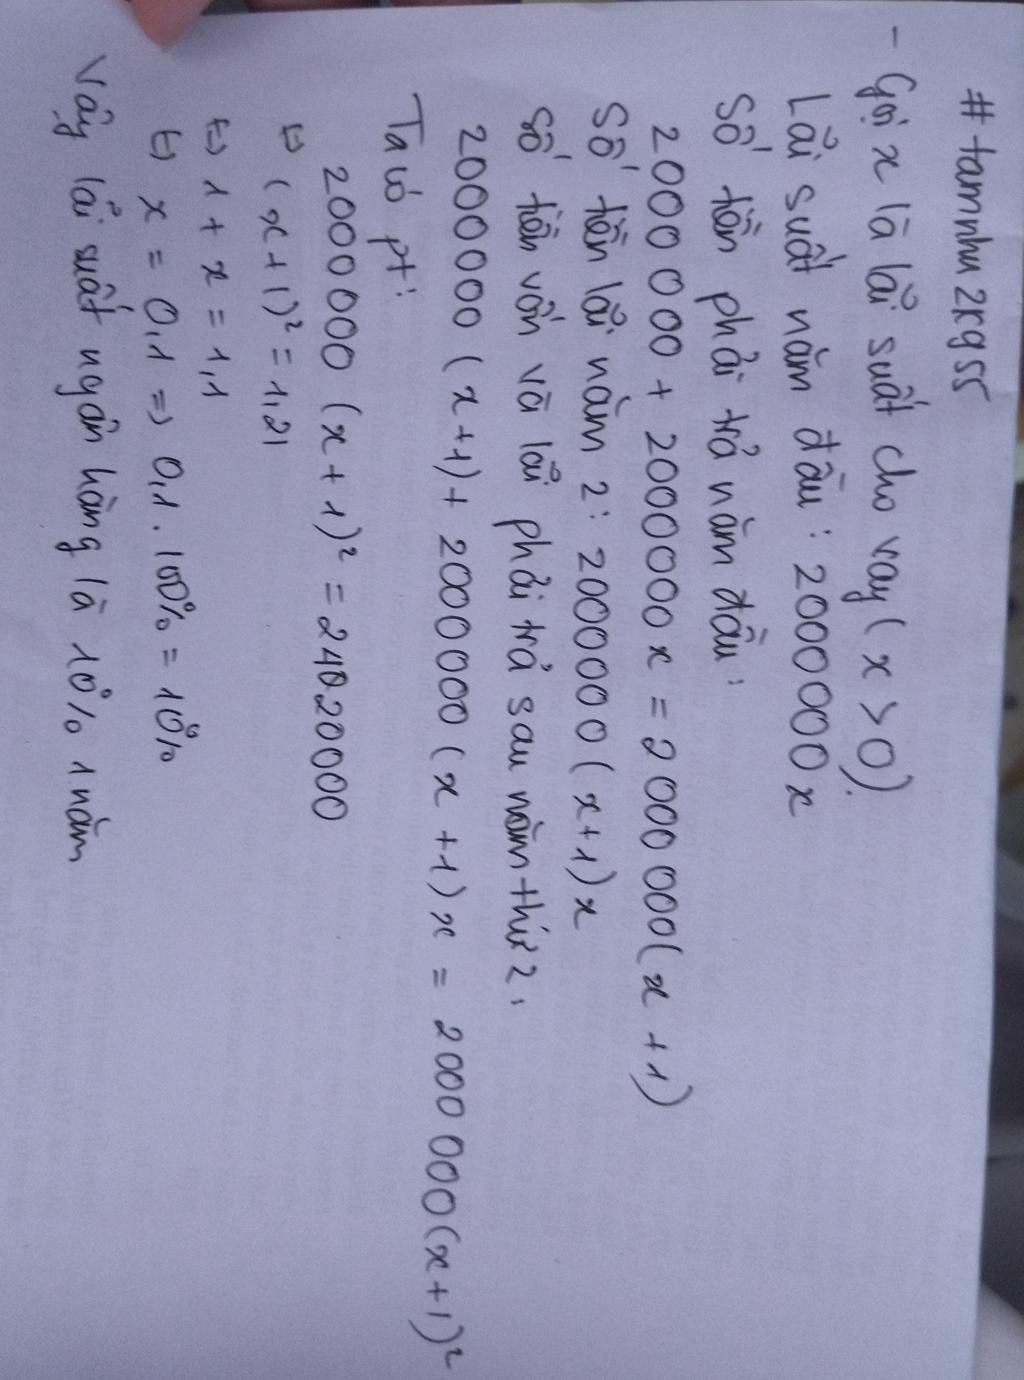 # tamnhu2kg55
- Gọi x là lãi suất cho vay (x > 0).
Lãi suất năm đầu : 2000000 x
Số tiền phải trả năm đầu :
2000 000 + 2000000x = 2 000 000(x + 1)
Số tiền lãi năm 2 : 2000000(x+1)x
Số tiền vốn và lãi phải trả sau năm thứ 2 :
2000000 (x+1) + 2000000(x+1)x = 2000 000(x+1)²
Ta có pt :
2000000 (x+1)² = 2420000
⇔ (x+1)² = 1,21
⇔ 1 + x = 1,1
⇔ x = 0,1 => 0,1 . 100% = 10%
Vậy lãi suất ngân hàng là 10% 1 năm